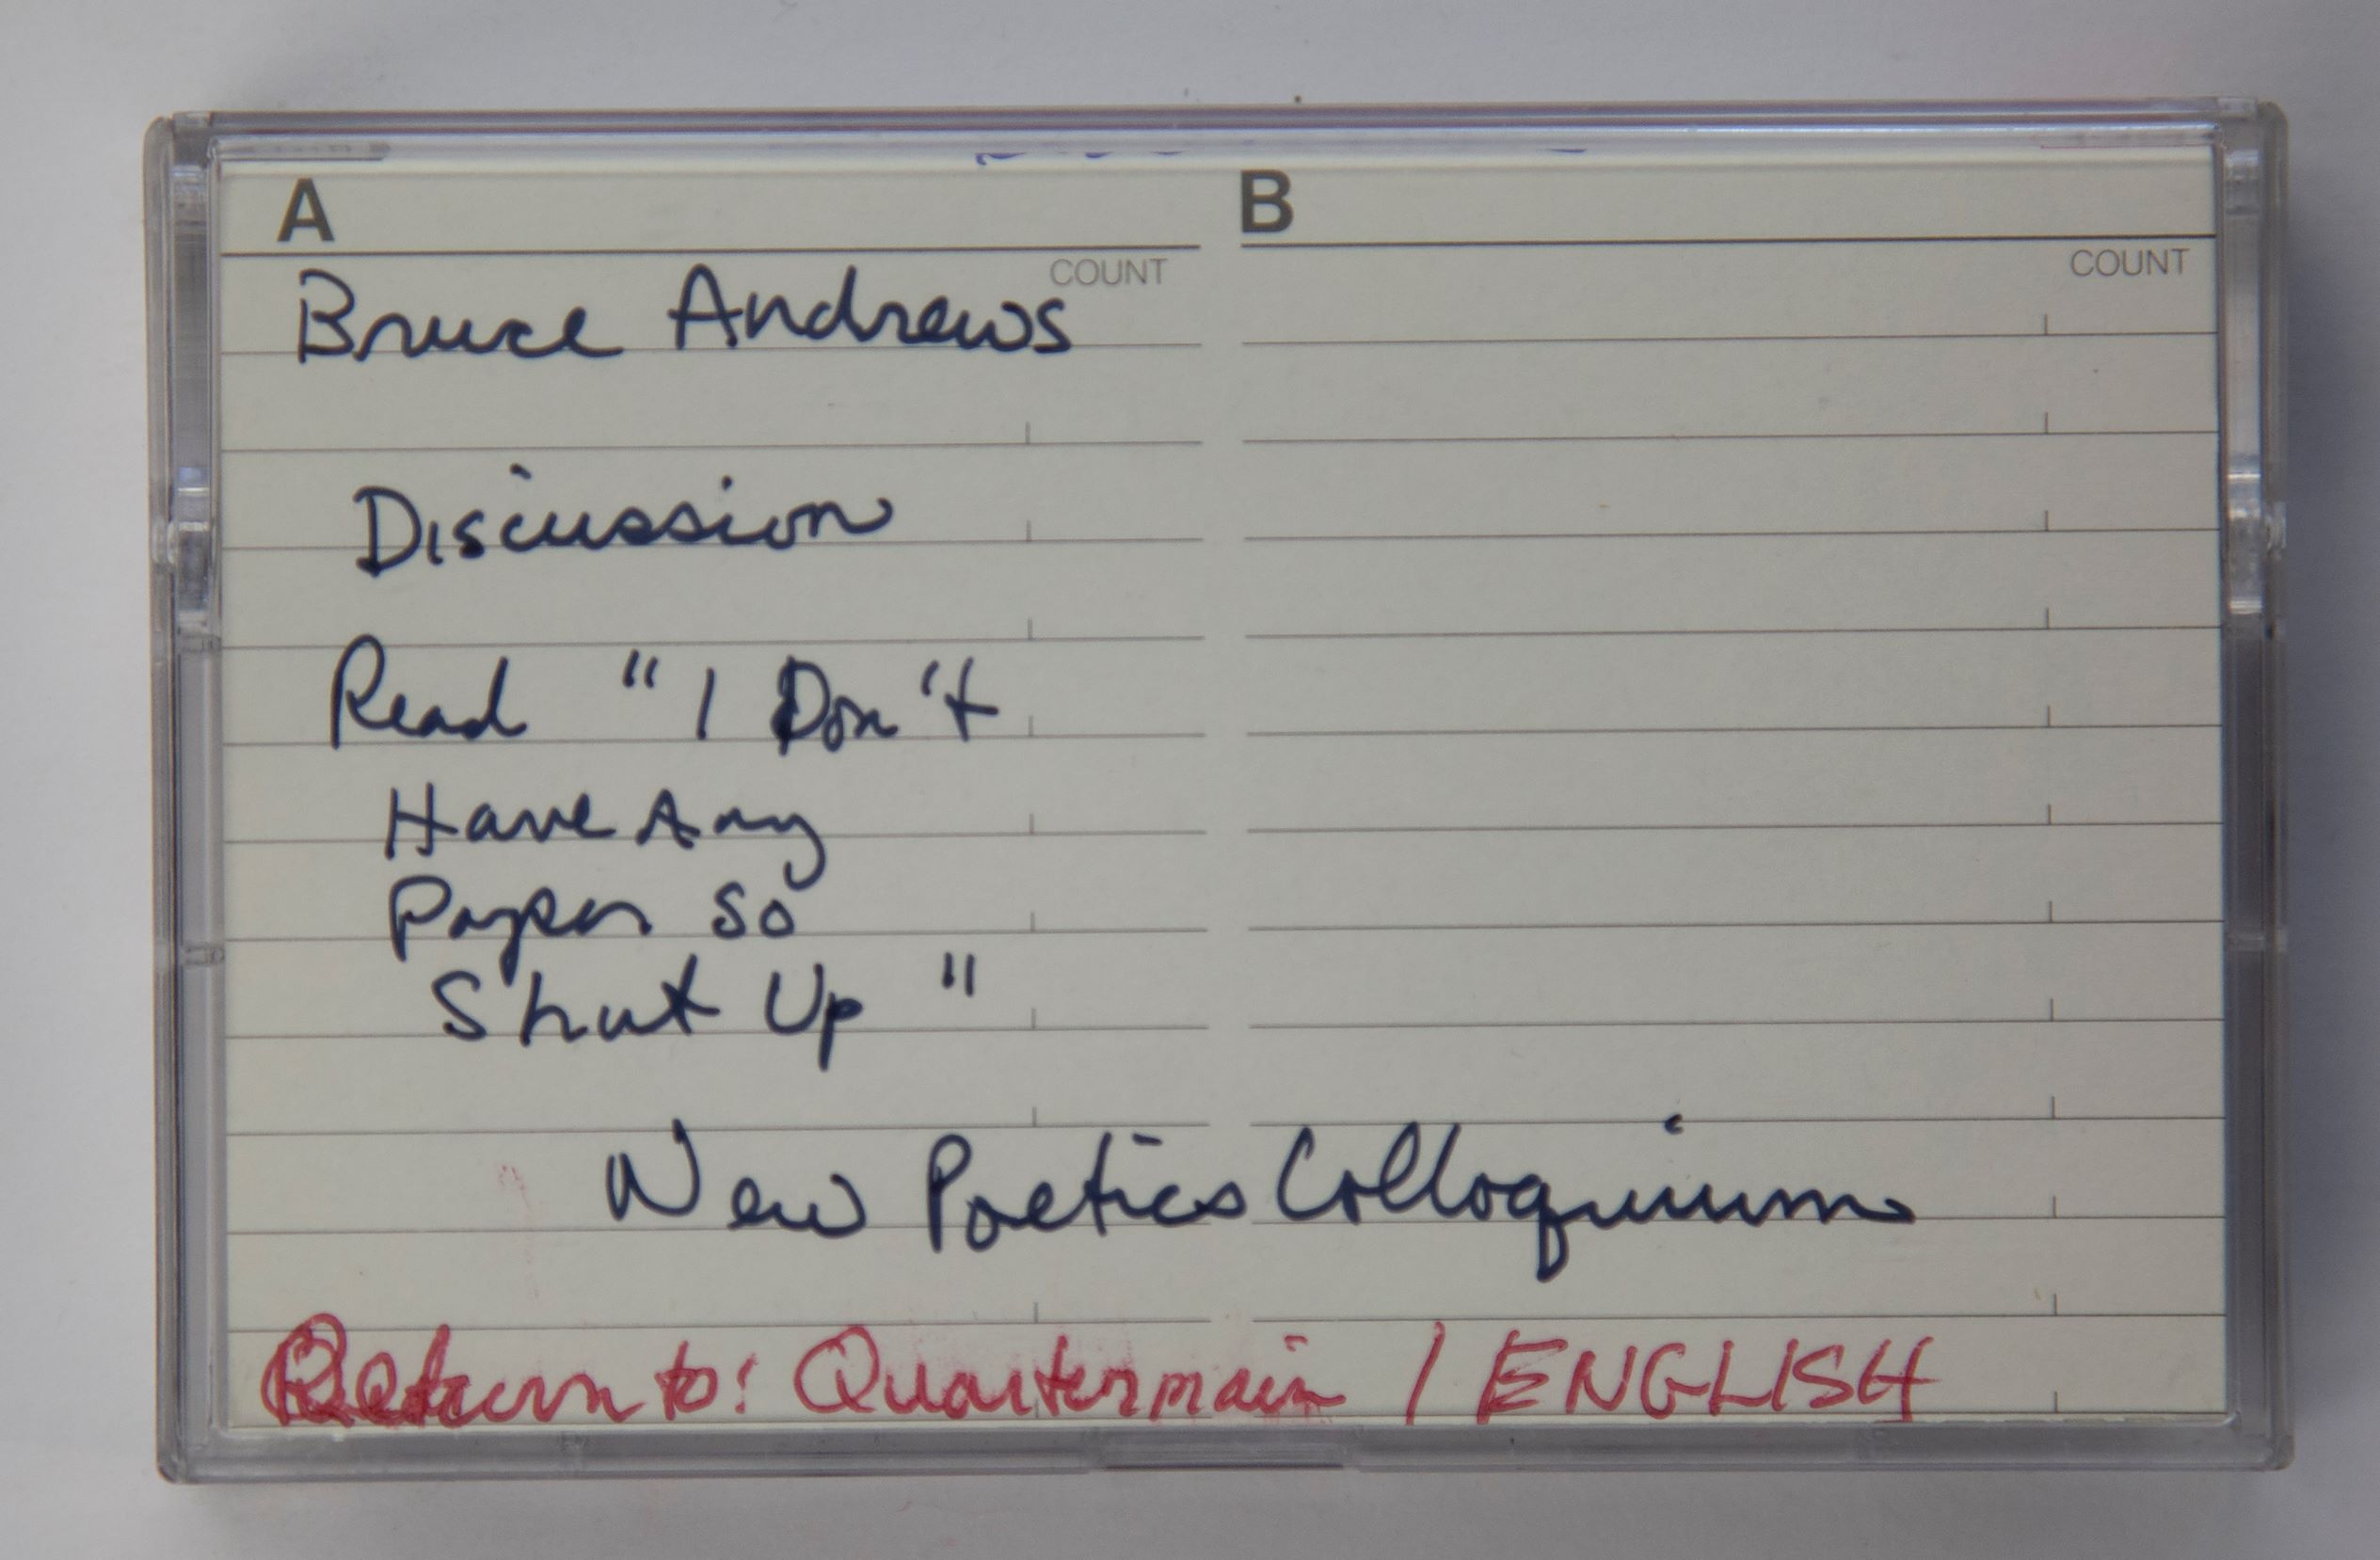 A B
COUNT COUNT
Bruce Andrews
Discussion
Read "I Don't
Have Any
Paper so
Shut Up"
New Poetics Colloquium
Return to: Quartermain / ENGLISH